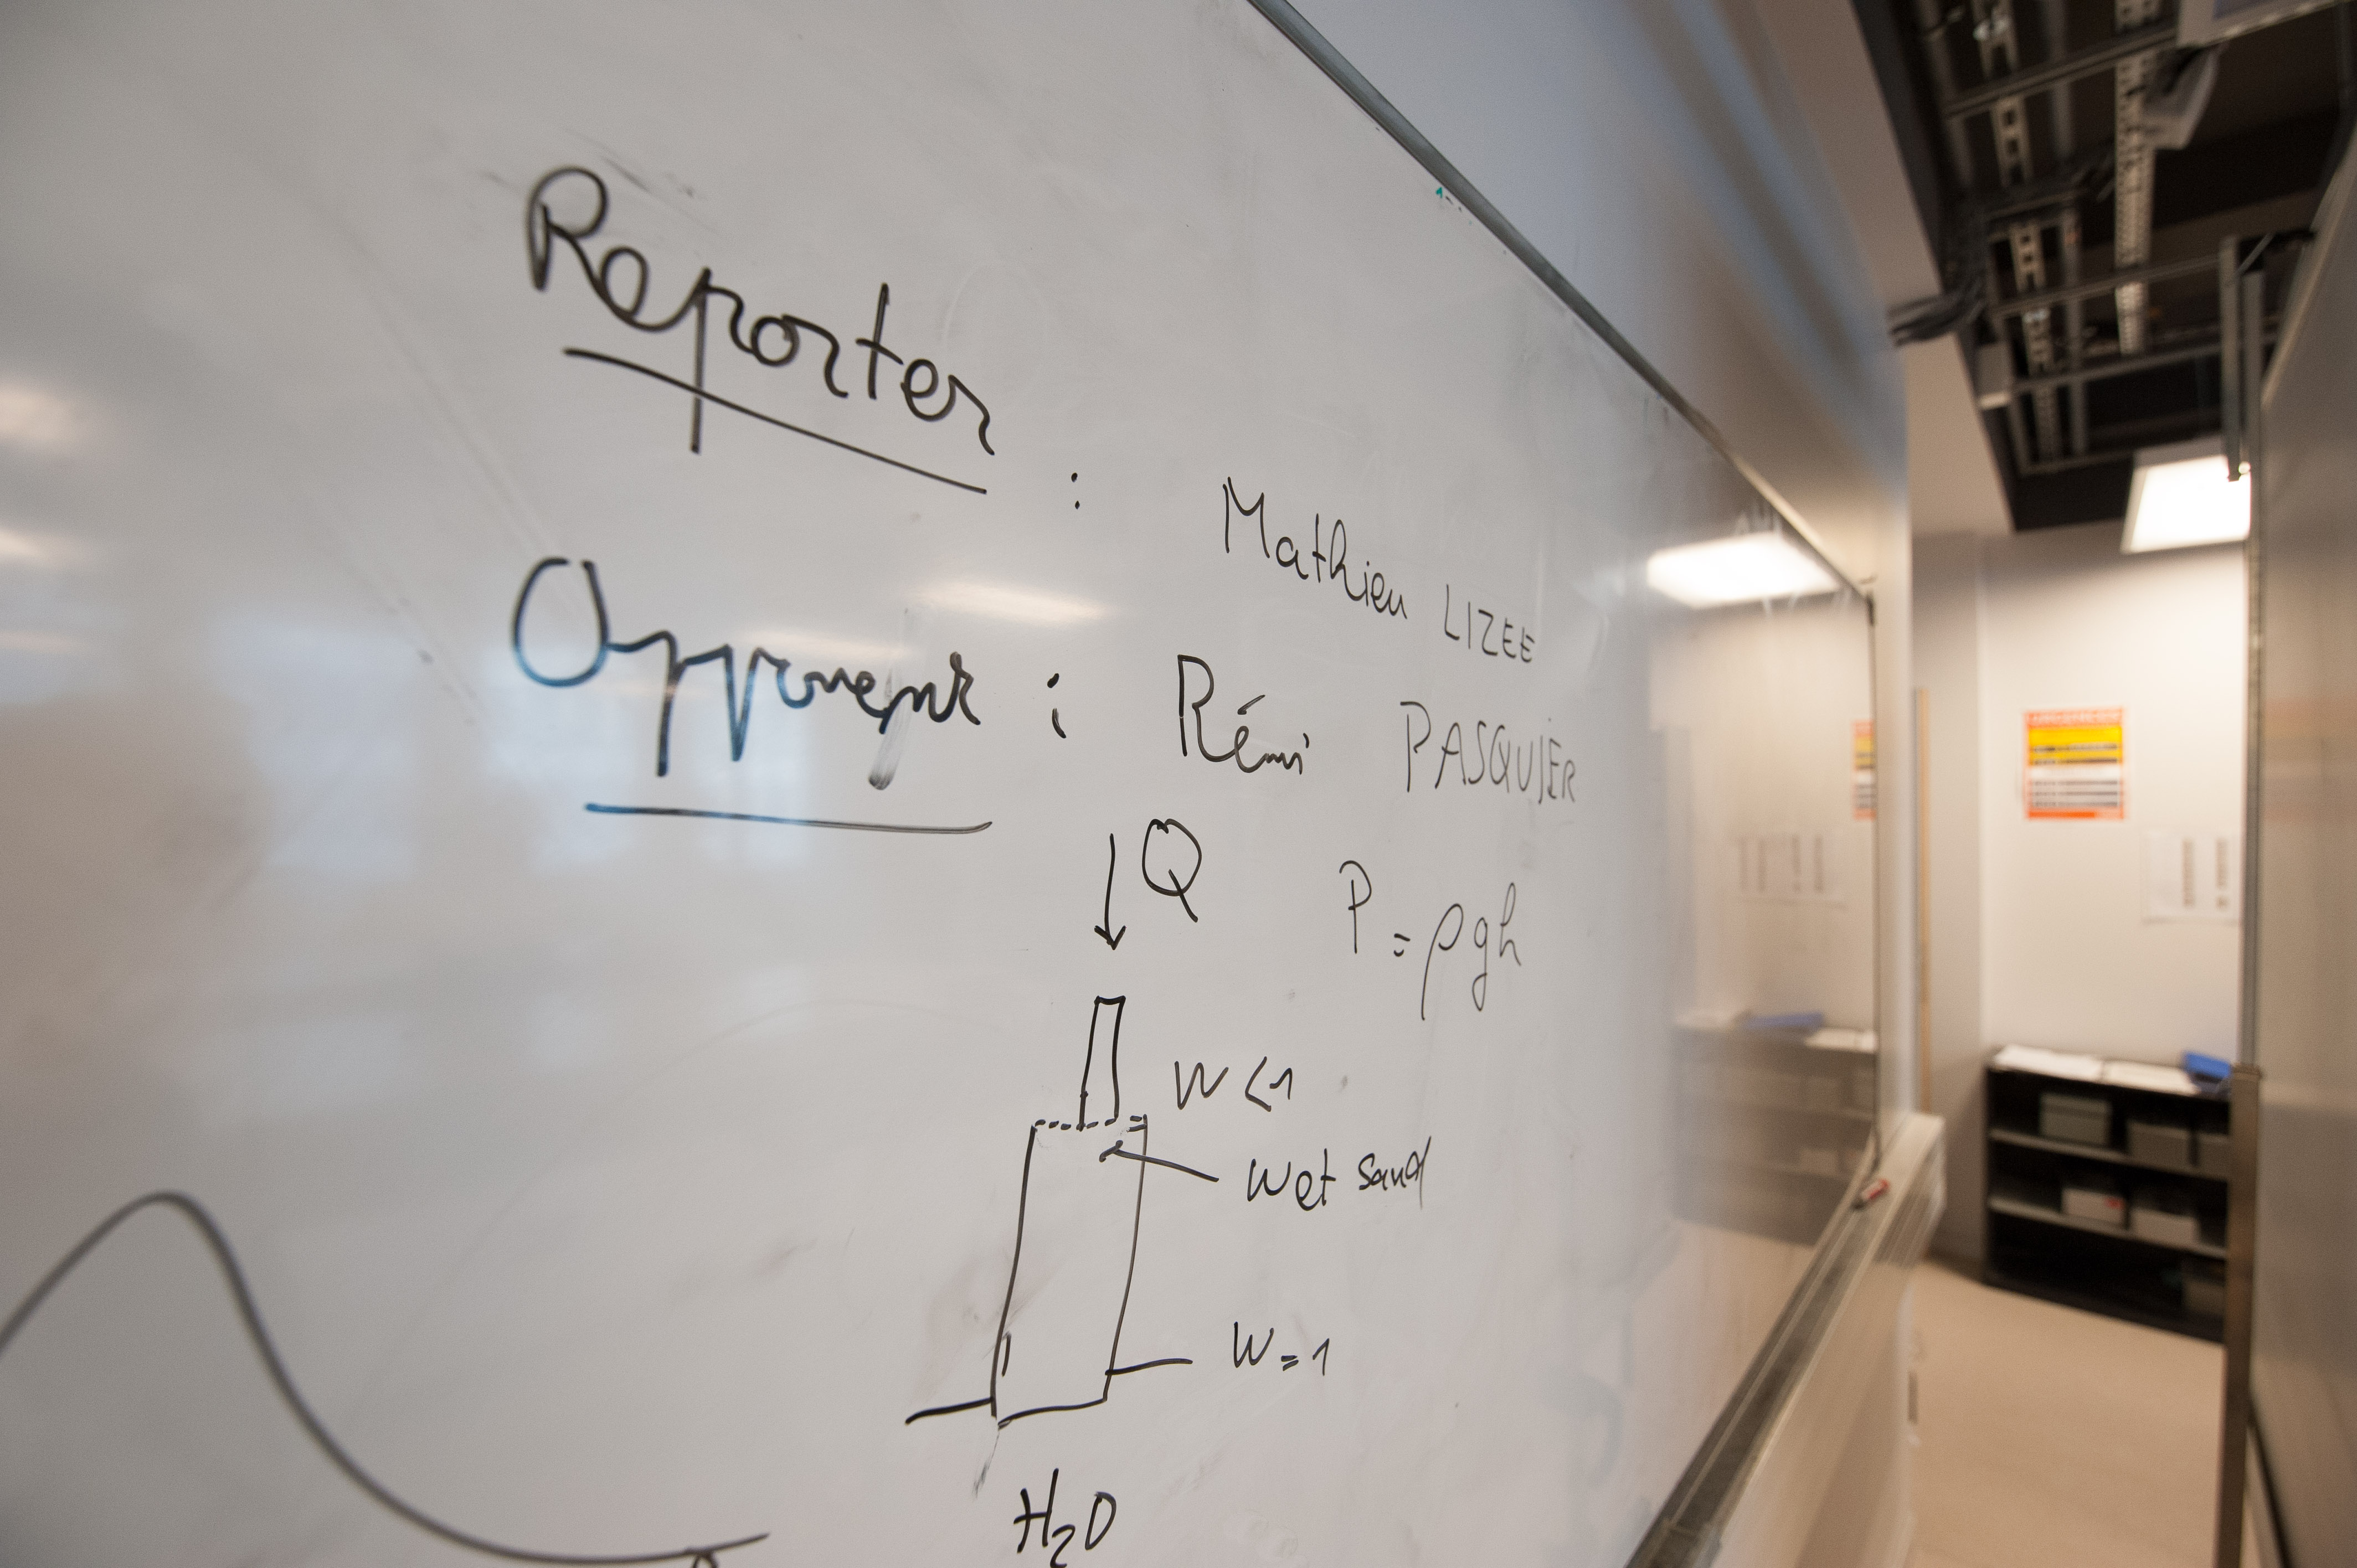 Reporter : Mathieu LIZEE
Opponent : Rémi PASQUIER
Q
P = ρgh
W <1
Wet sand
W = 1
H2O